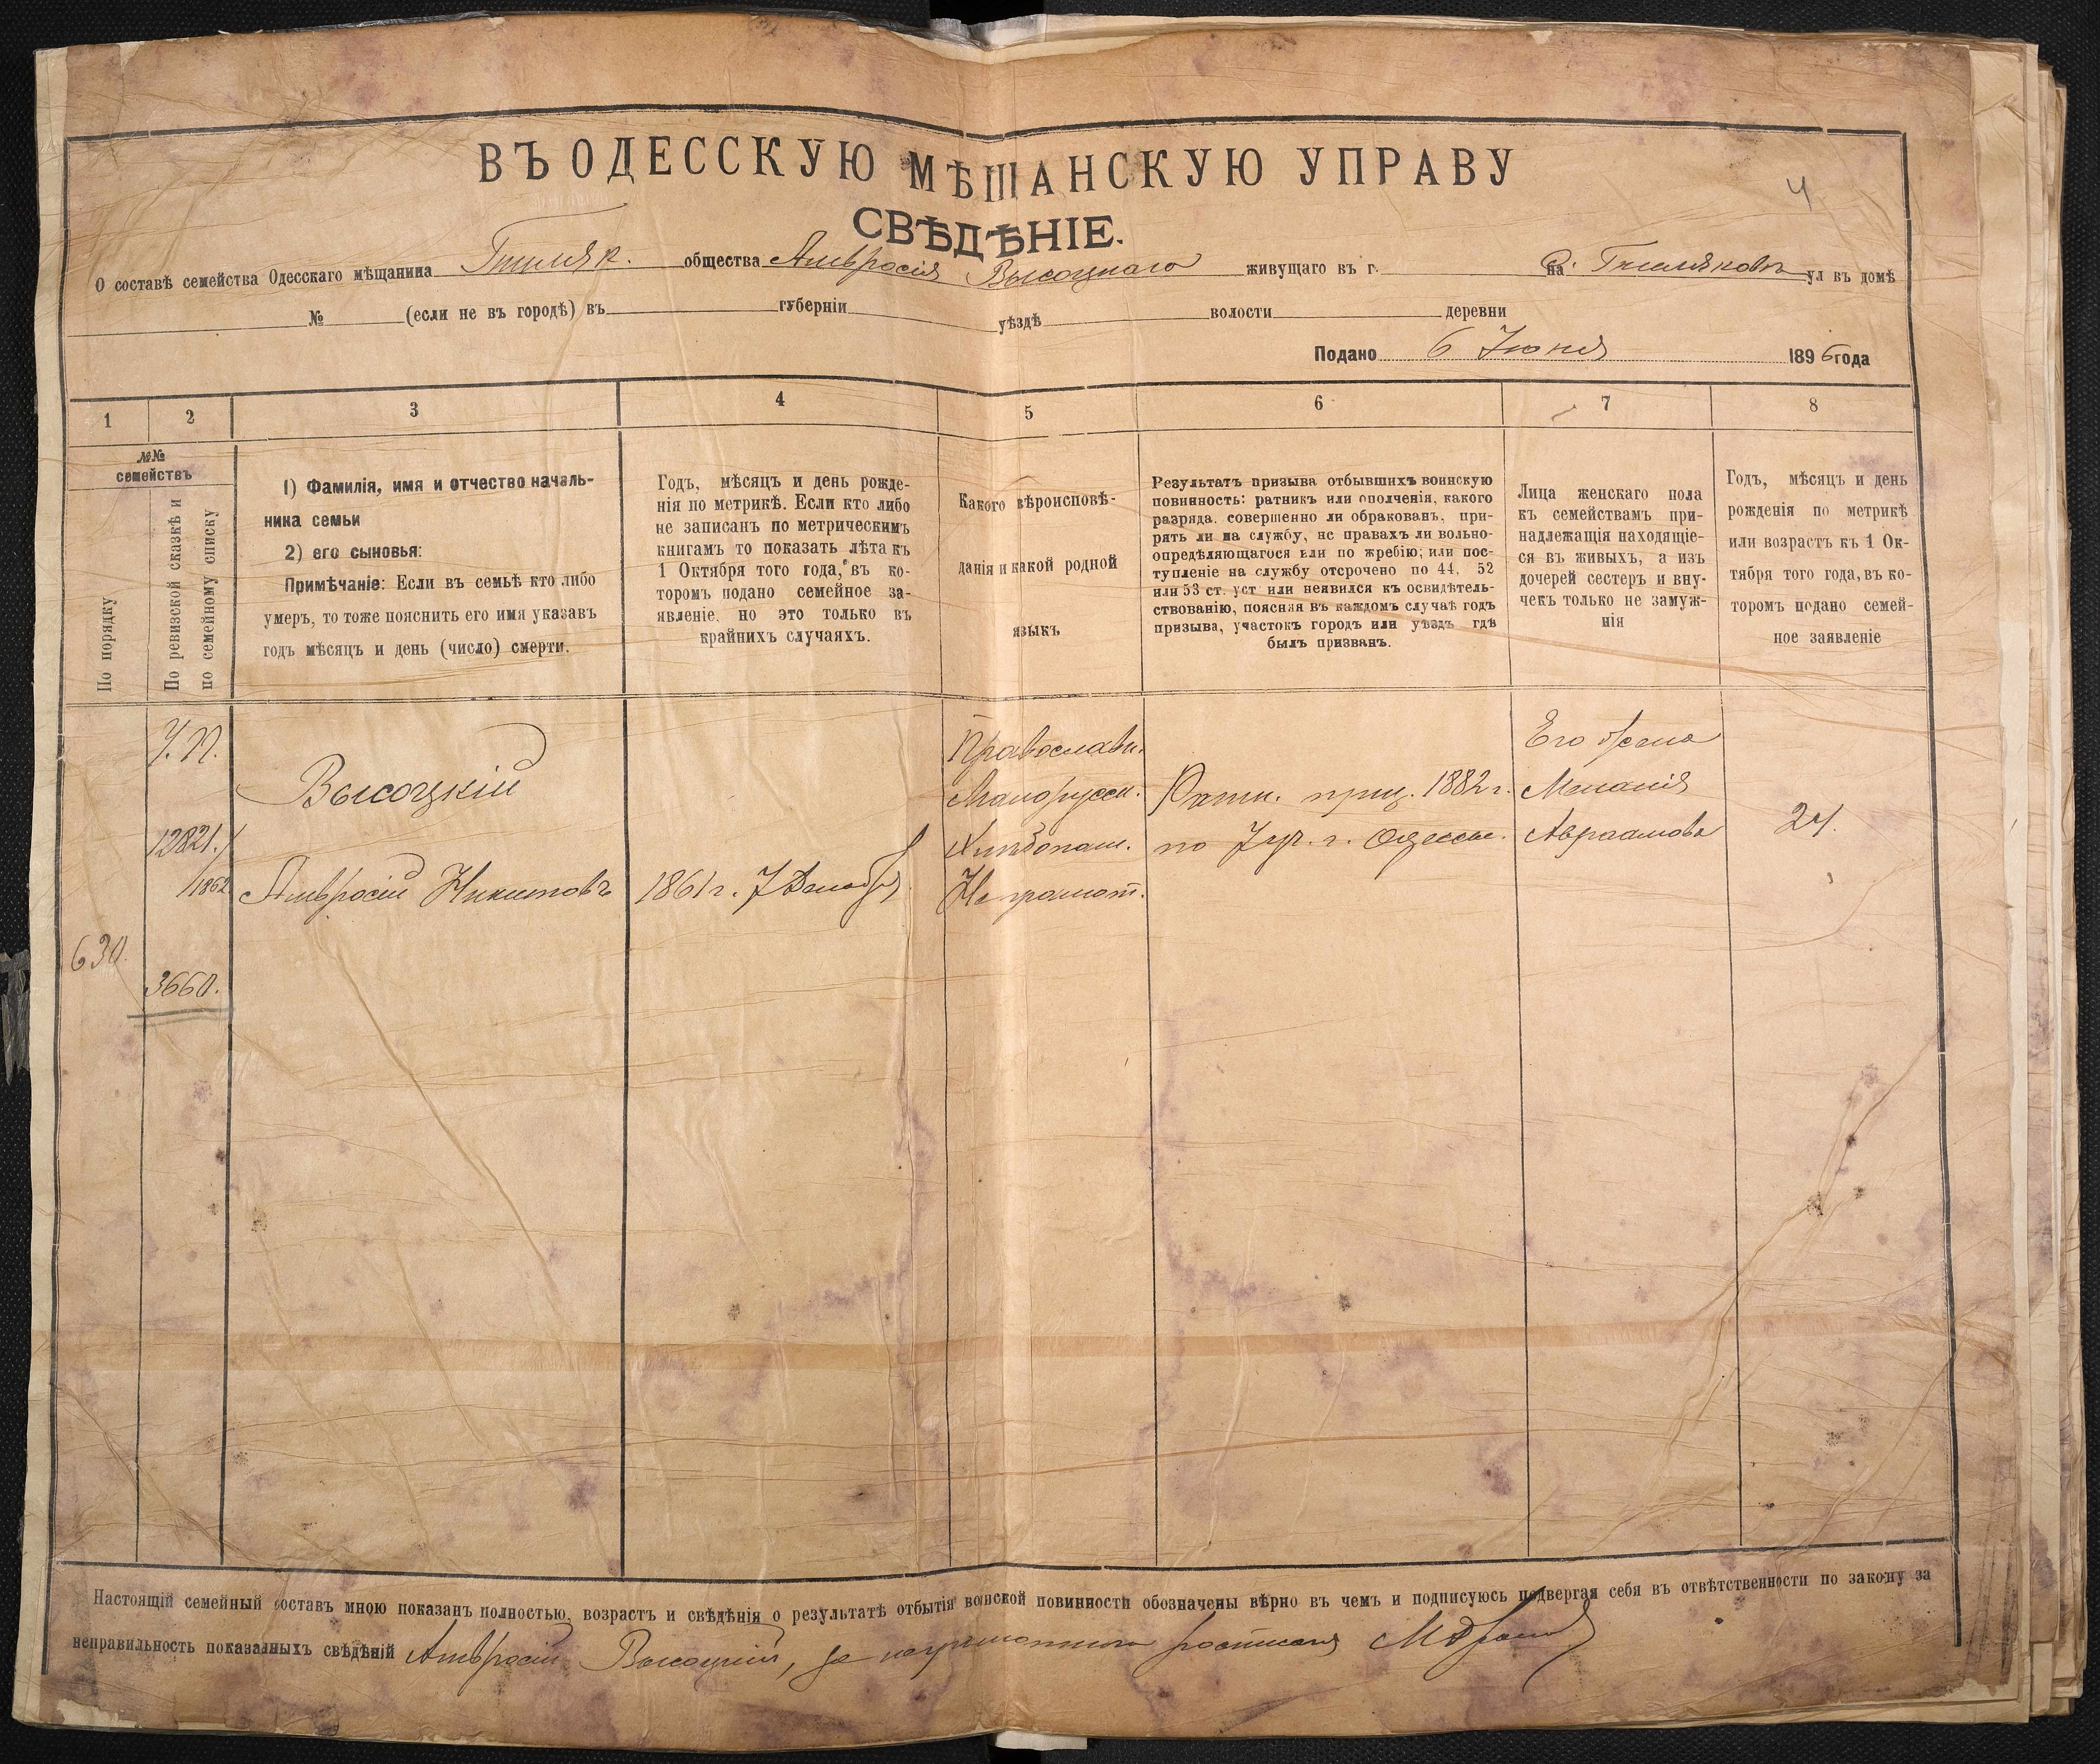 4
ВЪ ОДЕССКУЮ МѢЩАНСКУЮ УПРАВУ
СВѢДѢНІЕ.
О составѣ семейства Одесскаго мѣщанина общества Амвросія Высоцкаго живущаго въ г. на ул въ домѣ
№ (если не въ городѣ) въ губерніи уѣздѣ волости деревни
Подано 6 Іюня 1896 года
1 2 3 4 5 6 7 8
№№
семействъ
По порядку
По ревизской сказкѣ и
по семейному списку
1) Фамилія, имя и отчество началь-
ника семьи
2) его сыновья:
Примѣчаніе: Если въ семьѣ кто либо
умеръ, то тоже пояснить его имя указавъ
годъ мѣсяцъ и день (число) смерти.
Годъ, мѣсяцъ и день рожде-
нія по метрикѣ. Если кто либо
не записанъ по метрическимъ
книгамъ то показать лѣта къ
1 Октября того года, въ ко-
торомъ подано семейное за-
явленіе, но это только въ
крайнихъ случаяхъ.
Какого вѣроисповѣ-
данія и какой родной
языкъ
Результатъ призыва отбывшихъ воинскую
повинность: ратникъ или ополченія, какого
разряда. совершенно ли обракованъ, при-
рять ли на службу, нс правахъ ли вольно-
опредѣляющагося или по жребію; или пос-
тупленіе на службу отсрочено по 44, 52
или 53 ст. уст или неявился къ освидѣтель-
ствованію, поясняя въ каждомъ случаѣ годъ
призыва, участокъ городъ или уѣздъ гдѣ
былъ призванъ.
Лица женскаго пола
къ семействамъ при-
надлежащія находящіе-
ся въ живыхъ, а изъ
дочерей сестеръ и вну-
чекъ только не замуж-
нія
Годъ, мѣсяцъ и день
рожденія по метрикѣ
или возрастъ къ 1 Ок-
тября того года, въ ко-
торомъ подано семей-
ное заявленіе
630.
12821.
1862
3660.
Высоцкій
Амвросій Никитовъ
1861 г. 7 Декабря
Православн.
Малорусск.
Хлѣбопаш.
Неграмот.
Ратн. приз. 1882 г.
по 7 уч. г. Одессы.
Его жена
Меланія
Авраамова
24.
Настоящій семейный составъ мною показанъ полностью, возрастъ и свѣдѣнія о результатѣ отбытія воинской повинности обозначены вѣрно въ чемъ и подписуюсь подвергая себя въ отвѣтственности по закону за
неправильность показанныхъ свѣдѣній Амвросій Высоцкій, за неграмотнаго росписался